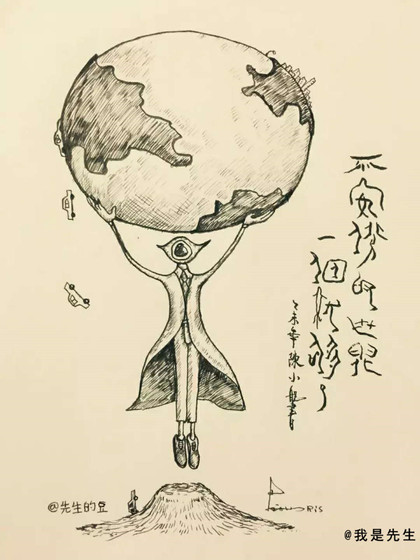 不安的世界
一個就夠了
乙未年陳小
@先生的豆
@我是先生